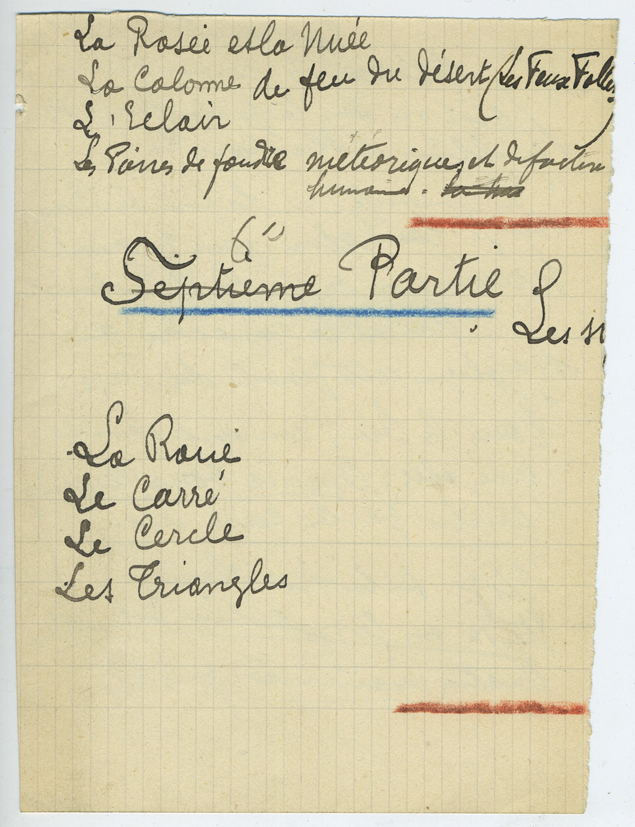 La Rosée et la Nuée
La Colonne de feu du désert (Les Feux Follets)
L'Eclair
Les Pierres de foudre météoriques et de facture
humaine.
6e
Septième Partie
Les
La Roue
Le Carré
Le Cercle
Les Triangles